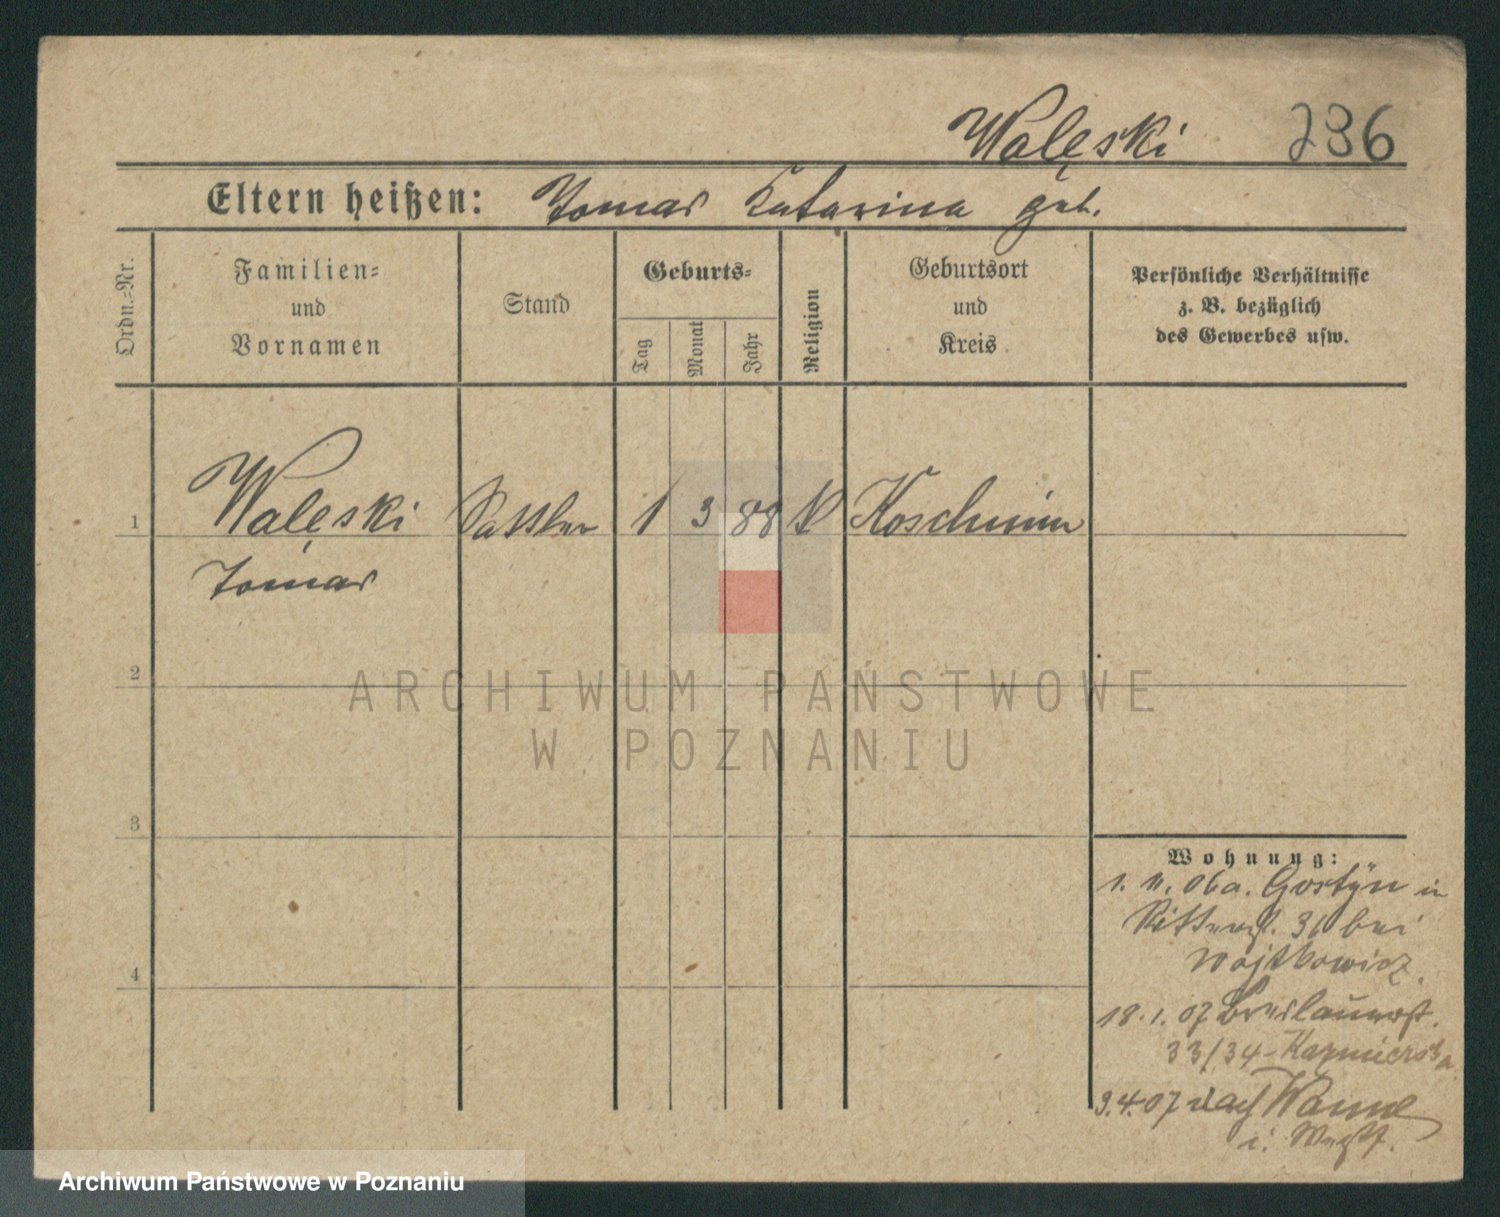 Walęski 236
Eltern heißen: Tomas Katarina geb.
Ordn.-Nr.
Familien-
und
Vornamen
Stand
Geburts-
Tag
Monat
Jahr
Religion
Geburtsort
und
Kreis
Persönliche Verhältnisse
z. B. bezüglich
des Gewerbes usw.
1 Walęski Sattler 1 3 88 K Koschmin
Tomas
2
ARCHIWUM PAŃSTWOWE
W POZNANIU
3
4
Wohnung:
1. 11. 06 a. Gostyn in
Ritterst. 36 bei
Wojtkowicz.
18. 1. 07 Breslauerst.
33/34 - Kazmierska
3. 4. 07 nach Wanne
i. Westf.
Archiwum Państwowe w Poznaniu